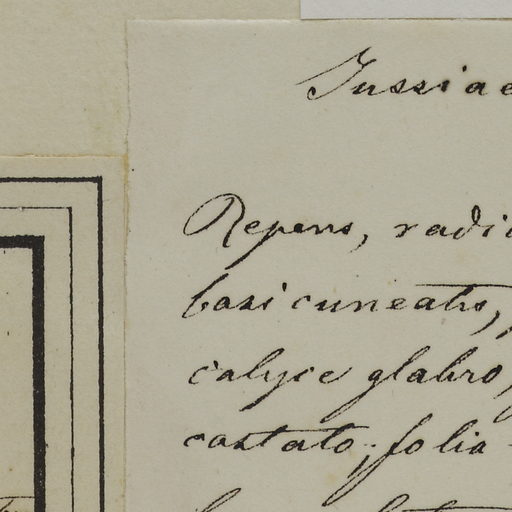 Jussiae
Repens, radi
basi cuneatis,
calyce glabro,
costato; folia